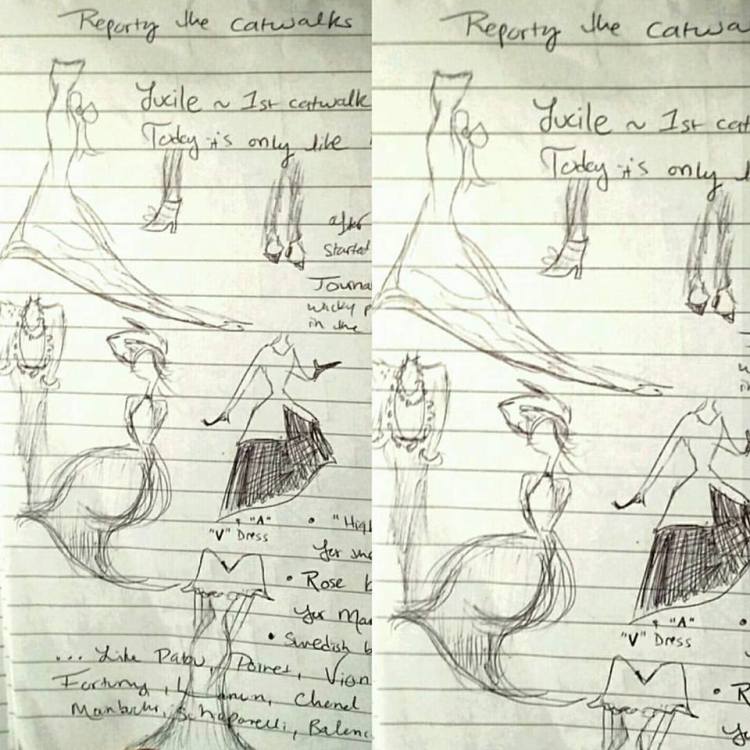 Reporty the catwalks
Lucile ~ 1st catwalk
Today it's only like
after
started
Journa
wicky p
in the
"A"
"V" Dress
• "High
for
• Rose b
for Ma
• Swedish b
... Like Paqu, Poiret, Vion
Fortuny, Lanvin, Chanel
Mainbocher, Schiaparelli, Balenc
Reporty the catwa
Lucile ~ 1st cat
Today it's only
"A"
"V" Dress